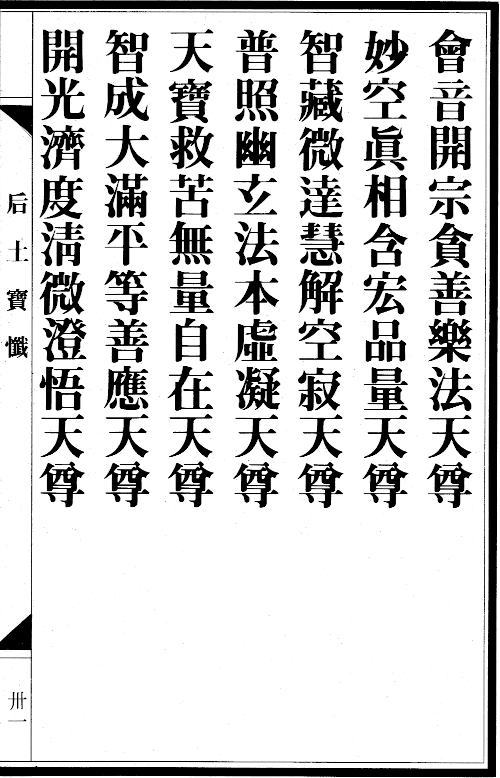 會音開宗貪善樂法天尊
妙空眞相含宏品量天尊
智藏微達慧解空寂天尊
普照幽玄法本虛凝天尊
天寶救苦無量自在天尊
智成大滿平等善應天尊
開光濟度淸微澄悟天尊
后土寶懺
卅一